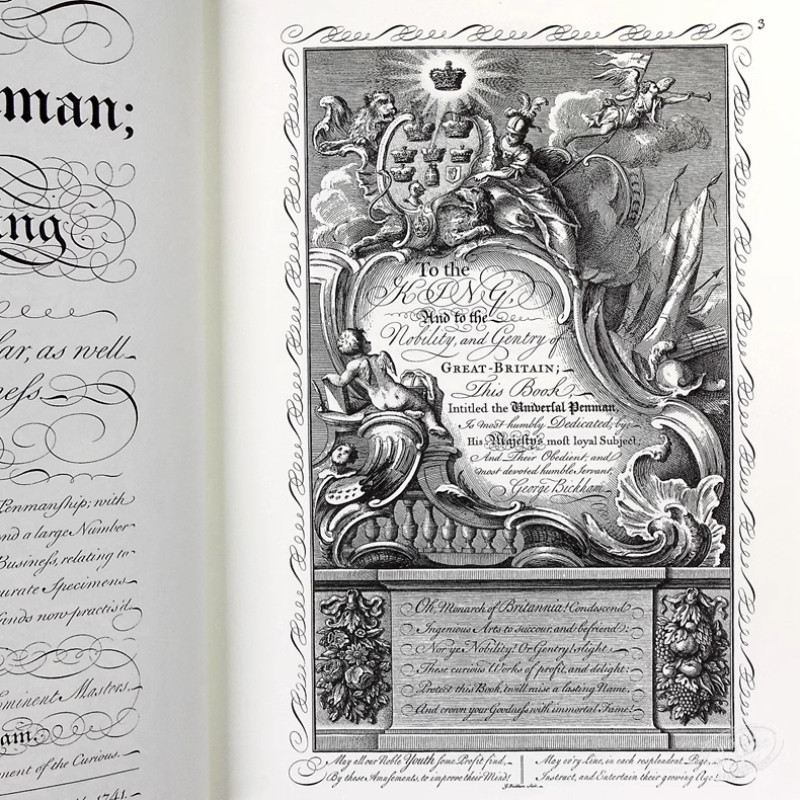 man;
ing
lar, as well
ness.
Penmanship; with
and a large Number
Business, relating to
curate Specimens
Kinds now practis'd
Eminent Masters.
am.
ment of the Curious.
1741.
3
To the
KING,
And to the
Nobility, and Gentry of
GREAT-BRITAIN;
This Book,
Intitled the Universal Penman,
Is most humbly Dedicated, by,
His Majesty's most loyal Subject,
And Their Obedient, and
most devoted humble Servant,
George Bickham.
Oh, Monarch of Britannia! Condescend
Ingenious Arts to succour, and befriend:
Nor ye Nobility! Or Gentry! slight
These curious Works of profit, and delight:
Protect this Book, twill raise a lasting Name,
And crown your Goodness with immortal Fame!
May all our Noble Youth some Profit find,
By these Amusements, to improve their Mind!
May ev'ry Line, in each resplendent Page,
Instruct, and Entertain their growing Age!